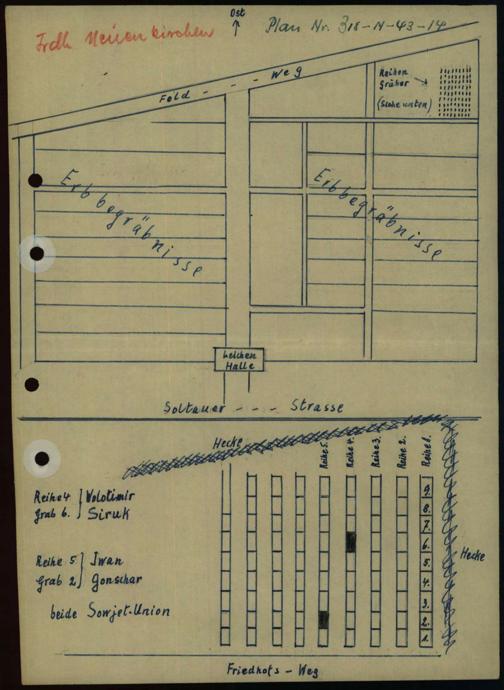 Ost
Frdh. Neuenkirchen
Plan Nr. 318-N-43-14
Feld - - - Weg
Reihen
Gräber
(Siehe unten)
Erbbegräbnisse
Erbbegräbnisse
Leichen
Halle
Soltauer - - - - Strasse
Hecke
Reihe 5.
Reihe 4.
Reihe 3.
Reihe 2.
Reihe 1.
Reihe 4
Grab 6.
Wolotimir
Siruk
Reihe 5
Grab 2
Iwan
Gonschar
beide Sowjet-Union
9.
8.
7.
6.
5.
4.
3.
2.
1.
Hecke
Friedhofs - Weg